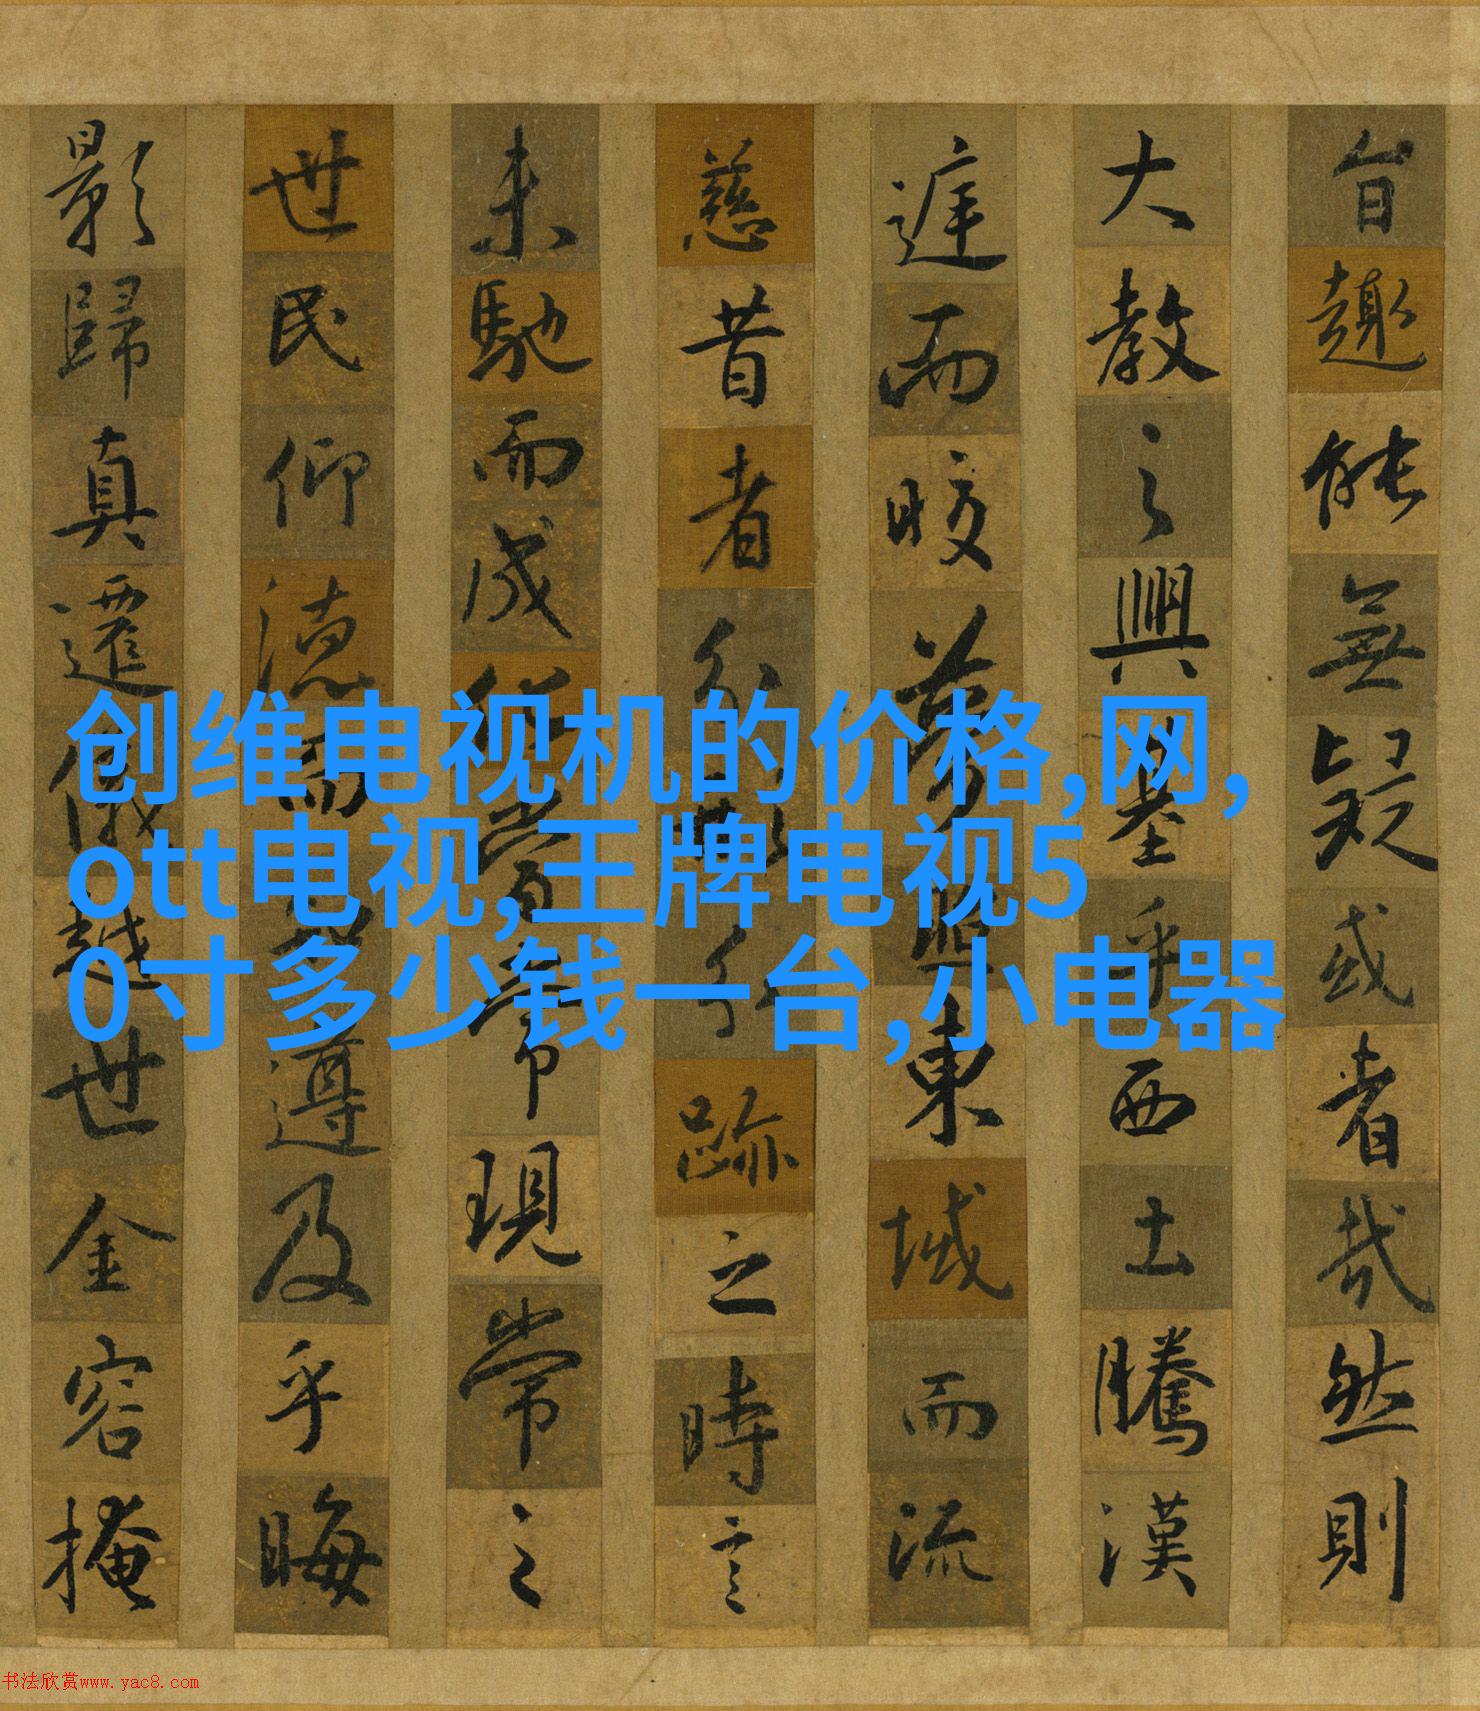 旨趣能無疑或者哉然則
大教之興基乎西土騰漢
庭而皎夢照東域而流
慈昔者分形分跡之時言
未馳而成化當常現常之
世民仰德而知遵及乎晦
影歸真遷儀越世金容掩
创维电视机的价格,网,
ott电视,王牌电视5
0寸多少钱一台,小电器
书法欣赏www.yac8.com